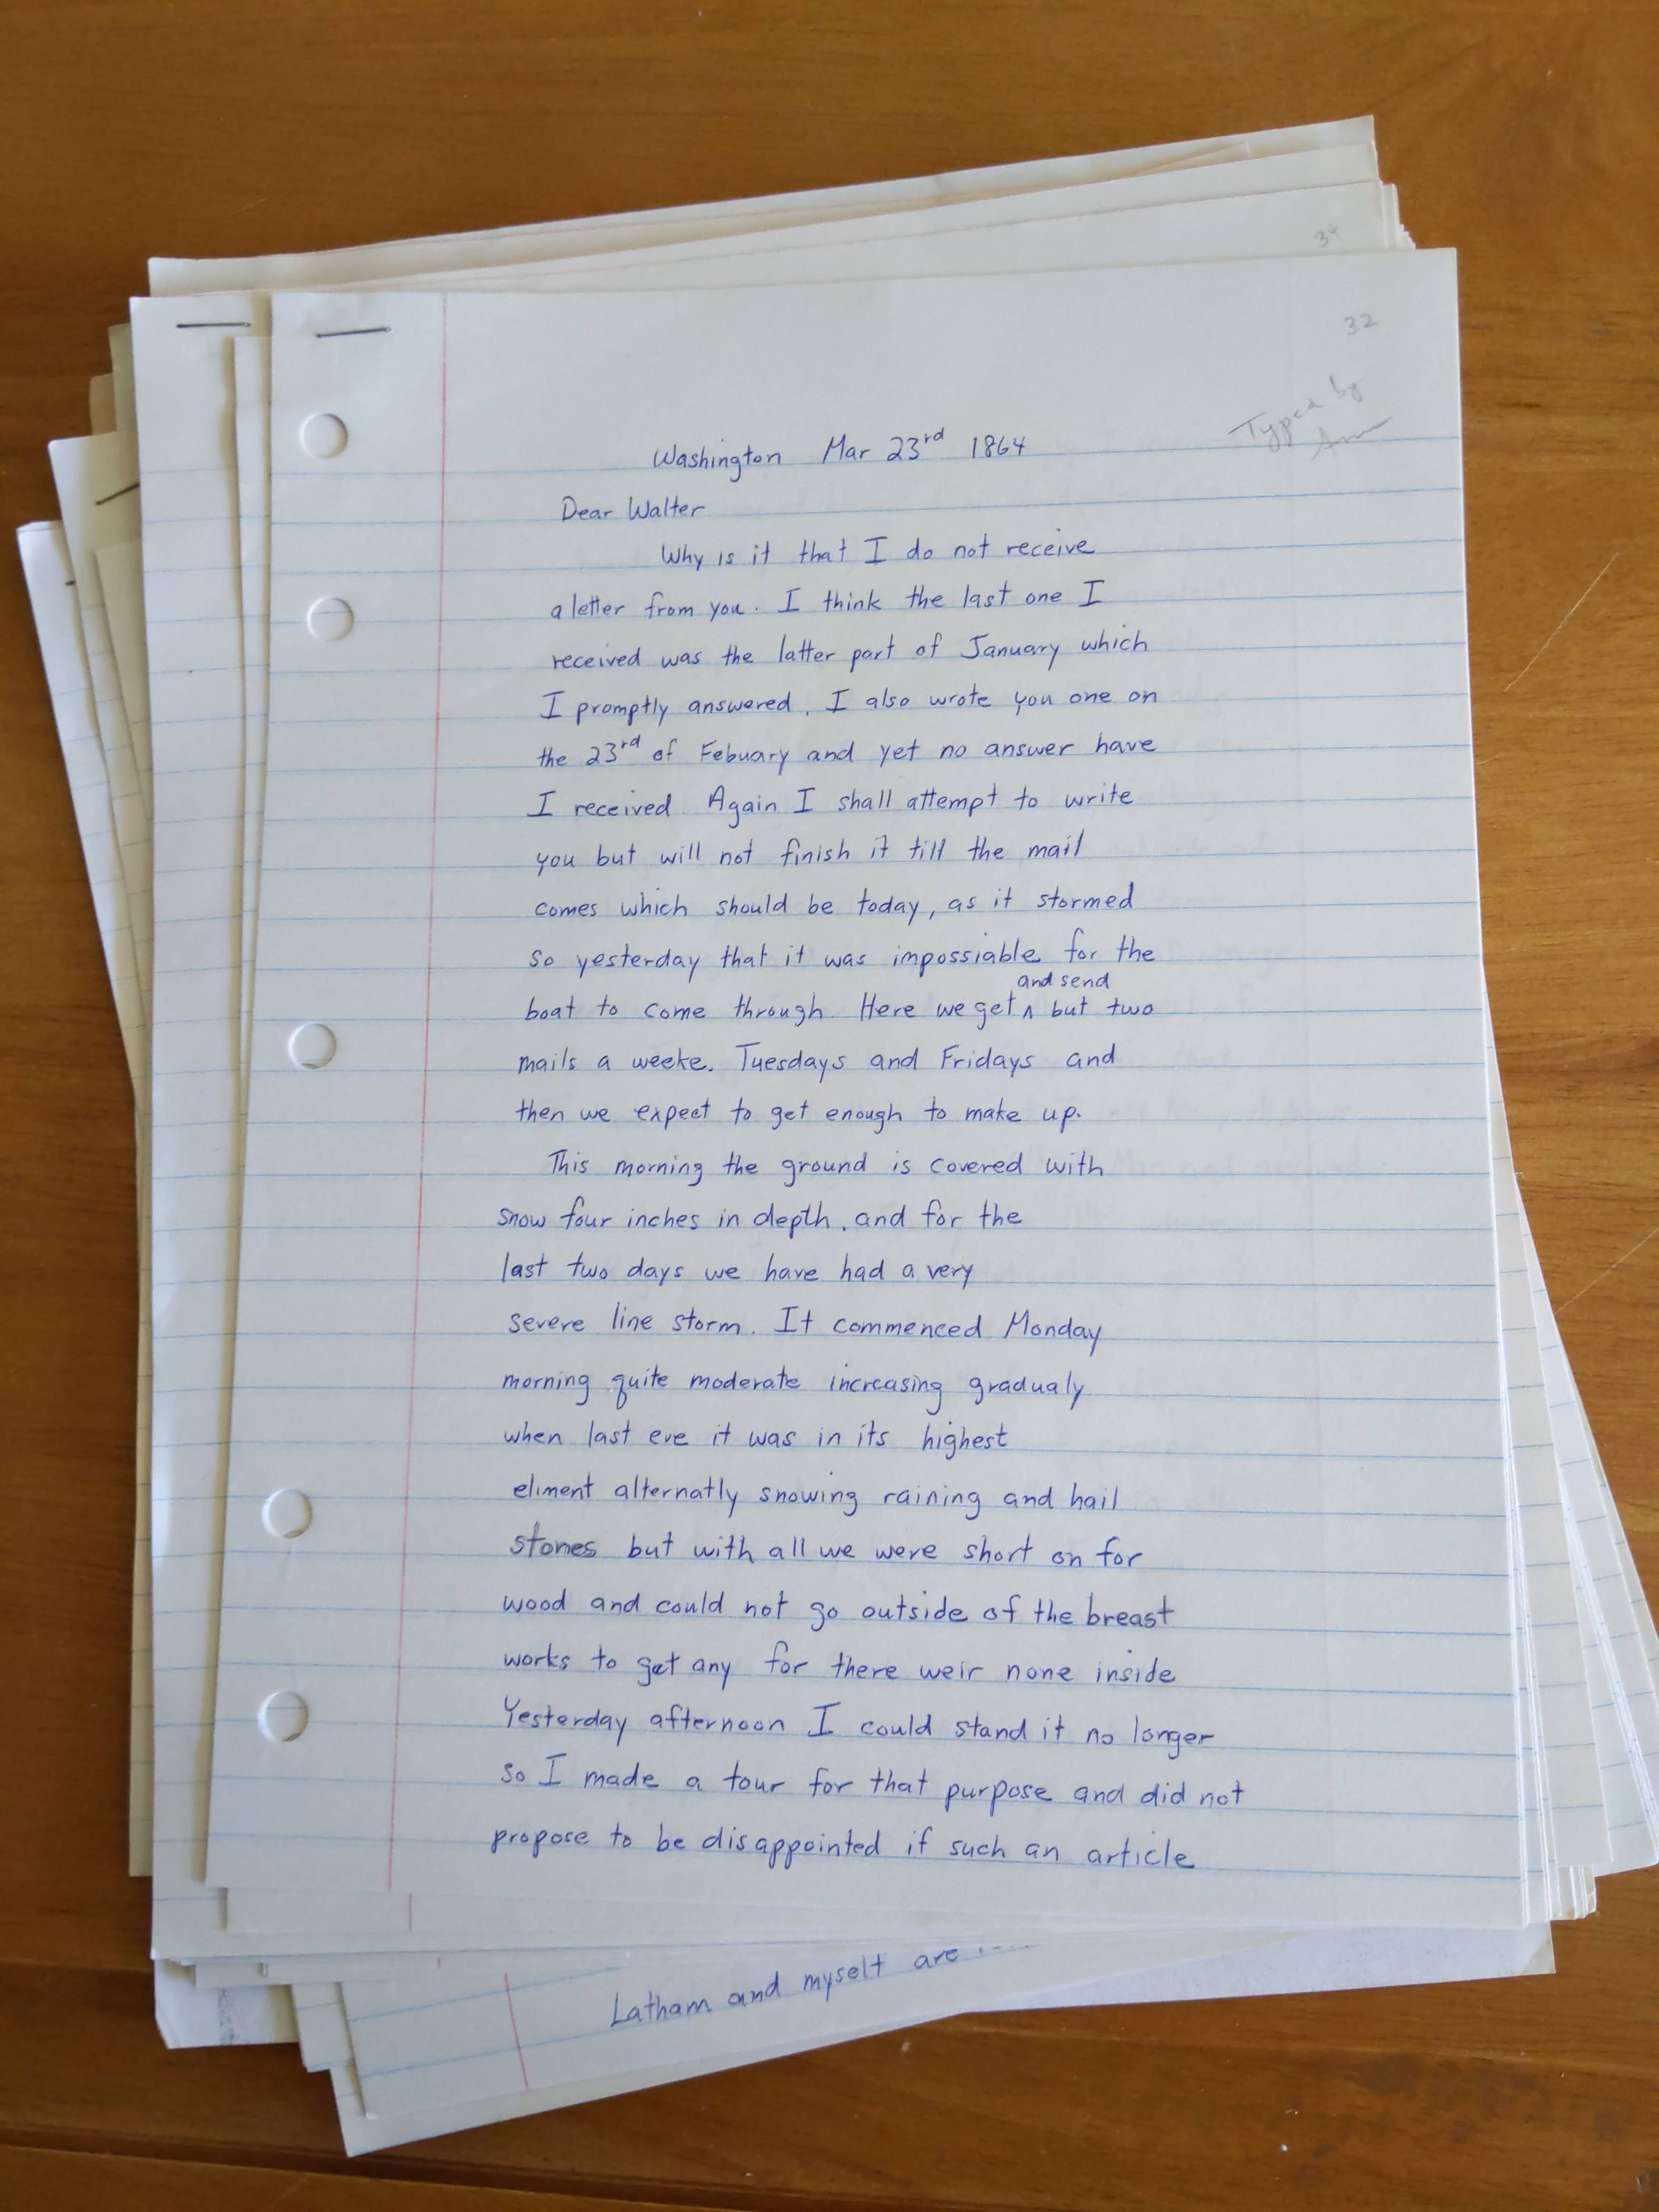 34
32
Typed by
Washington Mar 23rd 1864
Dear Walter
Why is it that I do not receive
a letter from you. I think the last one I
received was the latter part of January which
I promptly answered. I also wrote you one on
the 23rd of Febuary and yet no answer have
I received. Again I shall attempt to write
you but will not finish it till the mail
comes which should be today, as it stormed
so yesterday that it was impossiable for the
and send
boat to come through. Here we get ^ but two
mails a weeke. Tuesdays and Fridays and
then we expect to get enough to make up.
This morning the ground is covered with
snow four inches in depth, and for the
last two days we have had a very
severe line storm. It commenced Monday
morning quite moderate increasing gradualy
when last eve it was in its highest
eliment alternatly snowing raining and hail
stones but with all we were short on for
wood and could not go outside of the breast
works to get any for there weir none inside
Yesterday afternoon I could stand it no longer
so I made a tour for that purpose and did not
propose to be disappointed if such an article
Latham and myself are